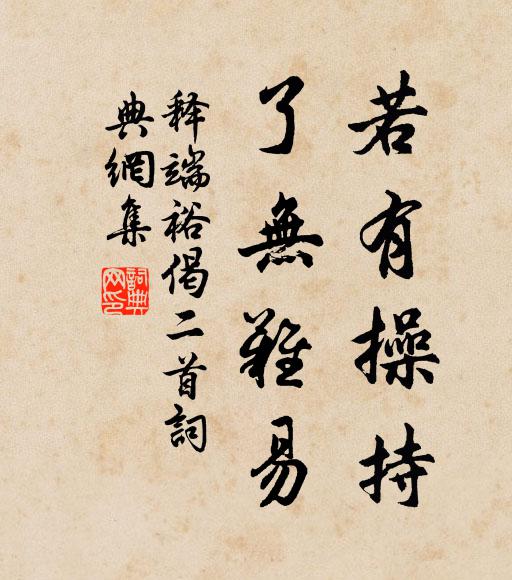 若有操持
了無難易
释端裕偈二首詞
典網集
詞典
网印